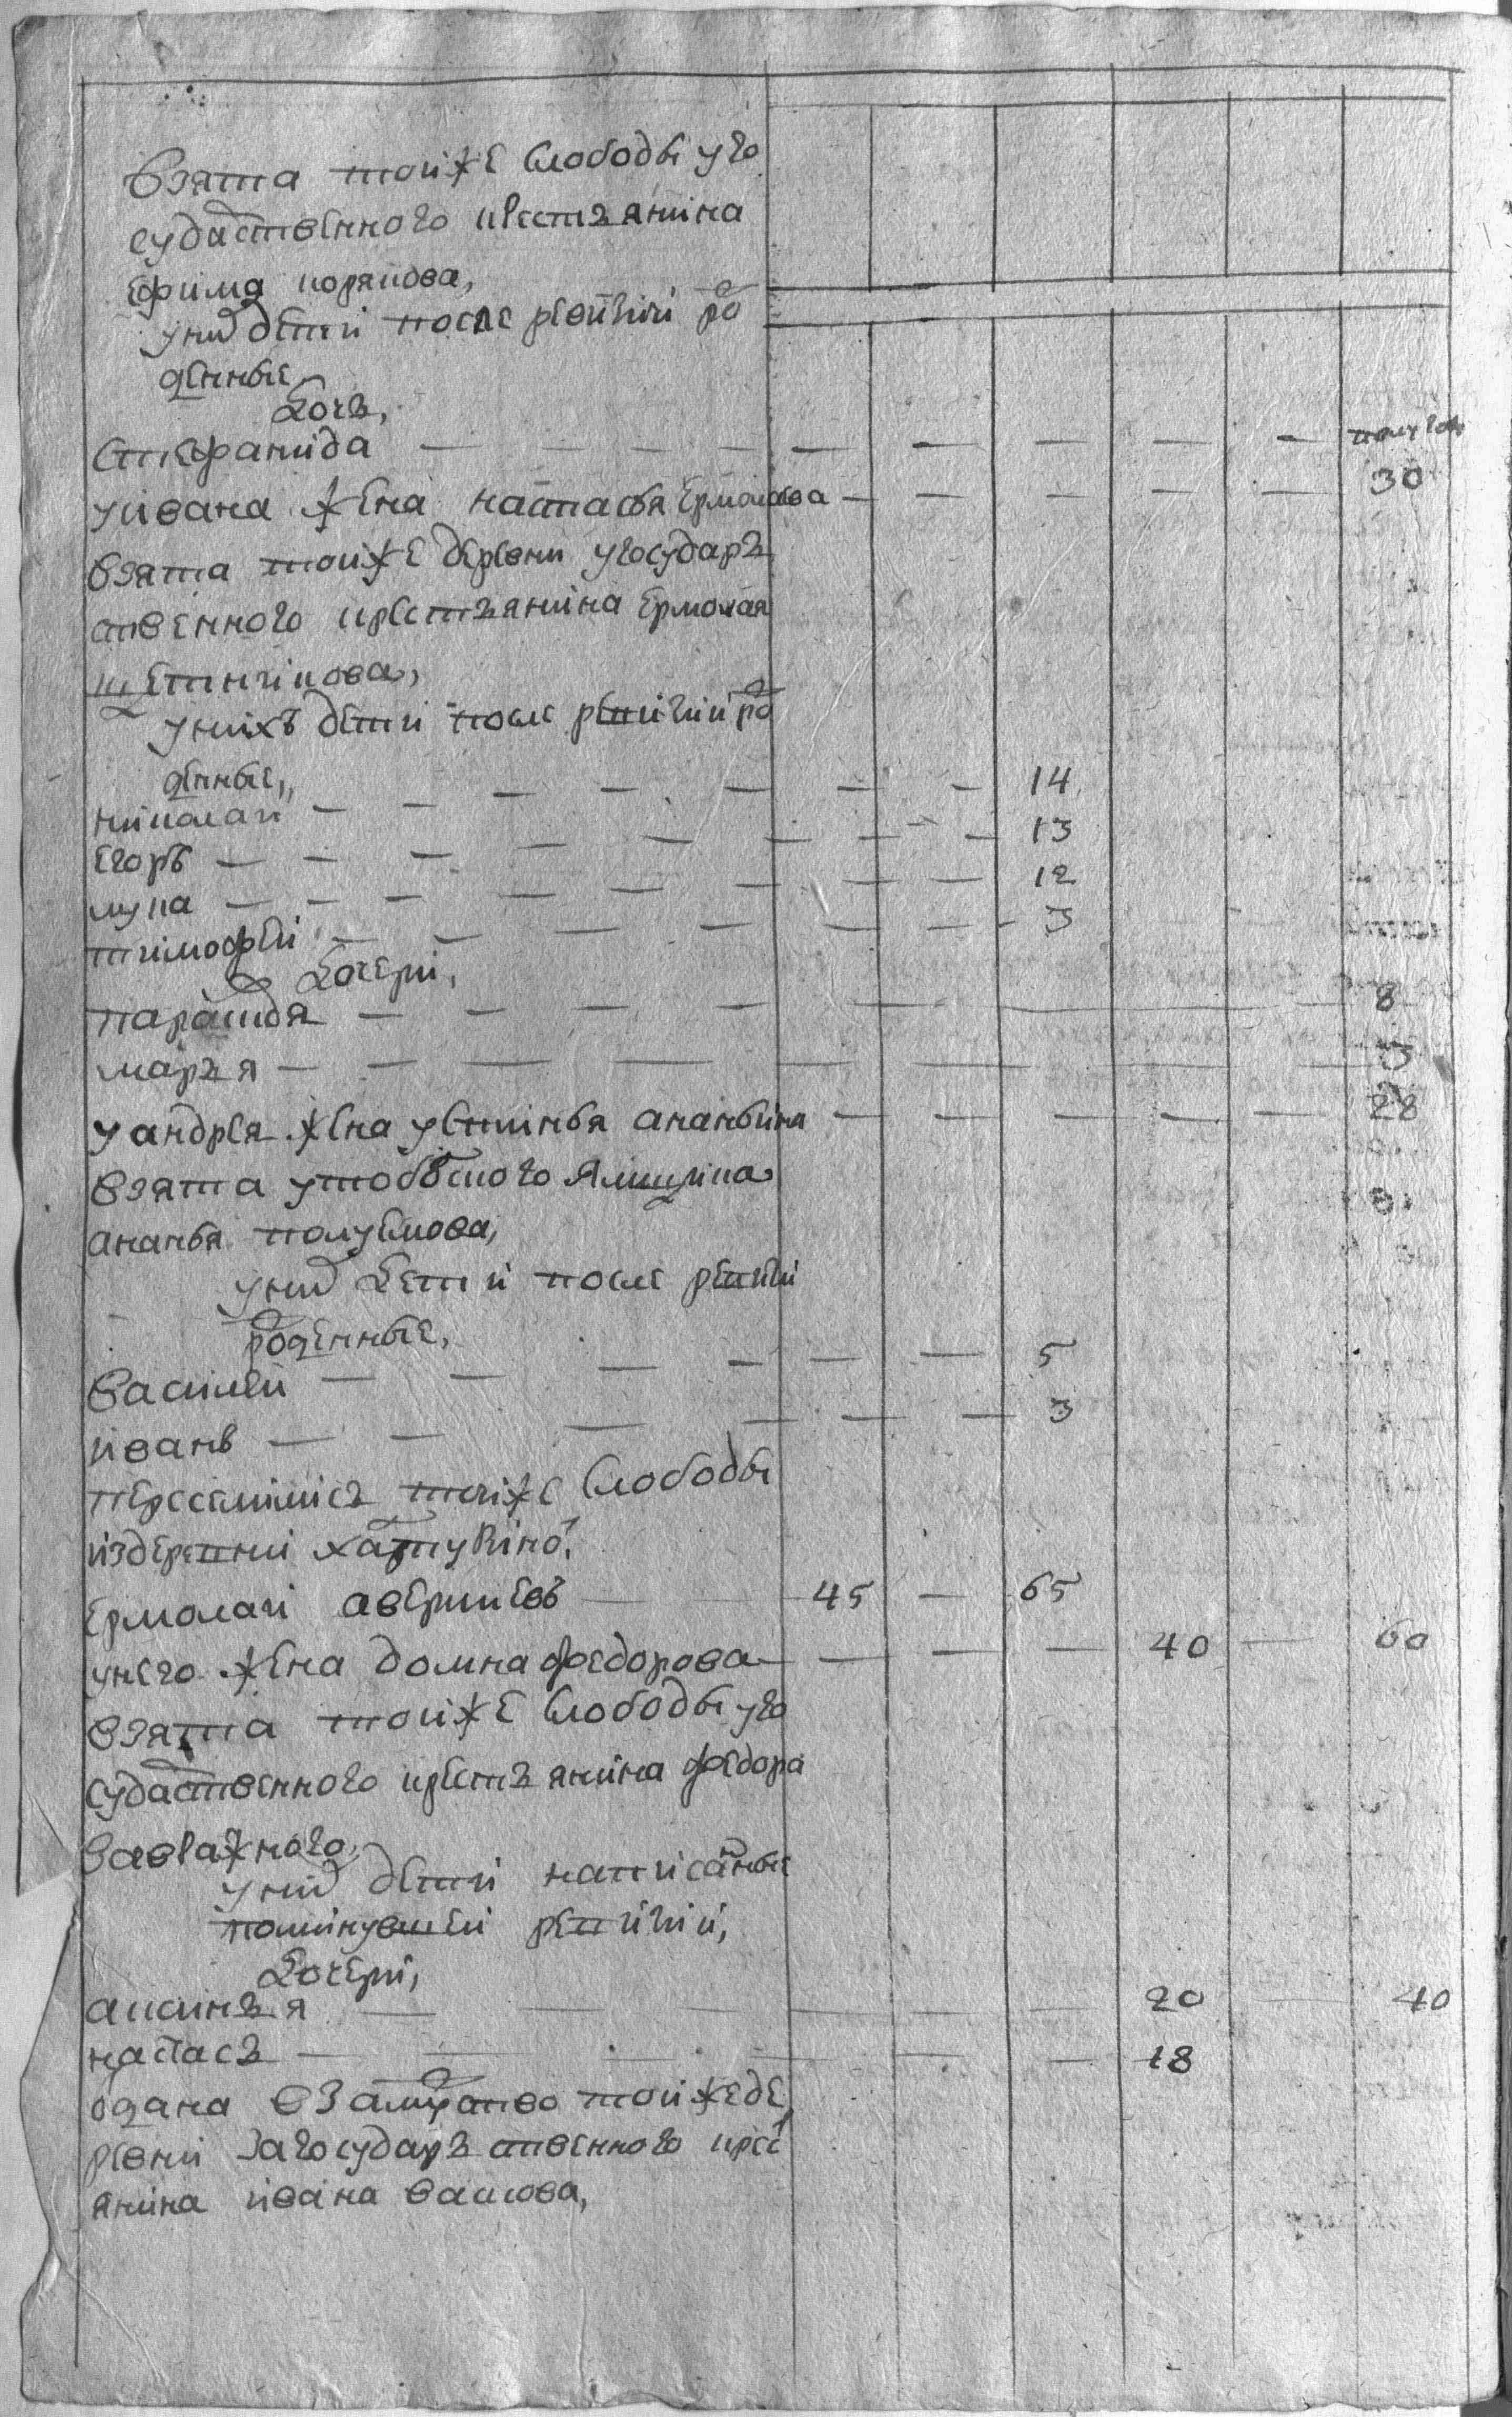 взята тойже слободы уго
сударственного крестьянина
ефима корякова,
уних детей после ревизии ро
жденные
дочь,
степанида — — — — — — — — полугоду
уивана жена настасья ермолаева — — — — — 30
взята тойже деревни угосударь
ственного крестьянина ермолая
щетинникова,
унихъ детей после ревизии ро
жденные,
николай — — — — — — — 14
егоръ — — — — — — — — 13
лука — — — — — — — 12
тимофей — — — — — — — 3
дочери,
парасковья — — — — — — — — — 8
марья — — — — — — — — — — 3
уандрея жена устинья ананьина — — — — — 28
взята утобольского ямщика
ананья полуектова,
уних детей после ревизии
рожденные,
василей — — — — — — 5
иванъ — — — — — — 3
переселились тойже слободы
издеревни
ермолай аверкиевъ — — 45 — 65
унего жена домна федорова — — — 40 — 60
взята тойже слободы уго
сударственного крестьянина федора
завражного,
уних детей написанные
поминувшей ревизии,
дочери,
аксинья — — — — — — 20 — 40
настасья — — — — — — — 18
отдана взамужство тойжеде
ревни загосударьственного крес
янина ивана